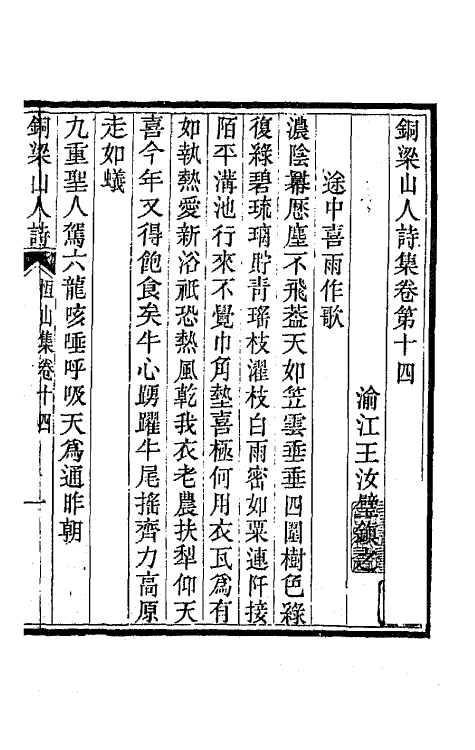 銅梁山人詩集卷第十四
渝江王汝璧鎮之
途中喜雨作歌
濃陰羃歷塵不飛葢天如笠雲垂垂四圍樹色綠
復綠碧琉璃貯靑瑤枝濯枝白雨密如粟連阡接
陌平溝池行來不覺巾角墊喜極何用衣瓦爲有
如執熱愛新浴祇恐熱風乾我衣老農扶犁仰天
喜今年又得飽食矣牛心踴躍牛尾搖齊力高原
走如蟻
九重聖人駕六龍咳唾呼吸天爲通昨朝
銅梁山人詩
恒山集卷十四
一